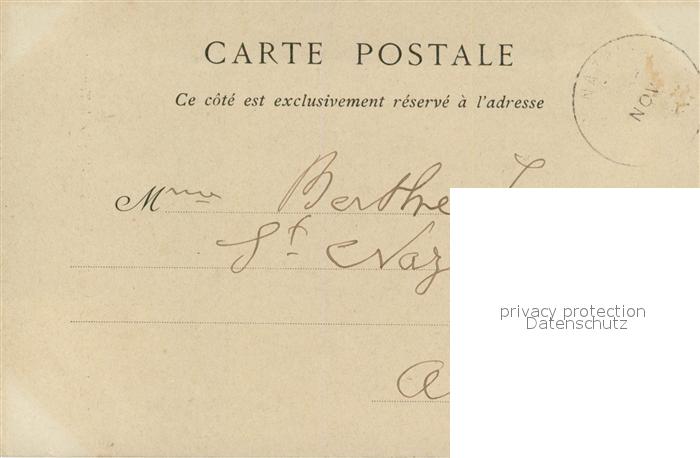 CARTE POSTALE
Ce côté est exclusivement réservé à l'adresse
NOV
Mme Berthe
St Naz
privacy protection
Datenschutz